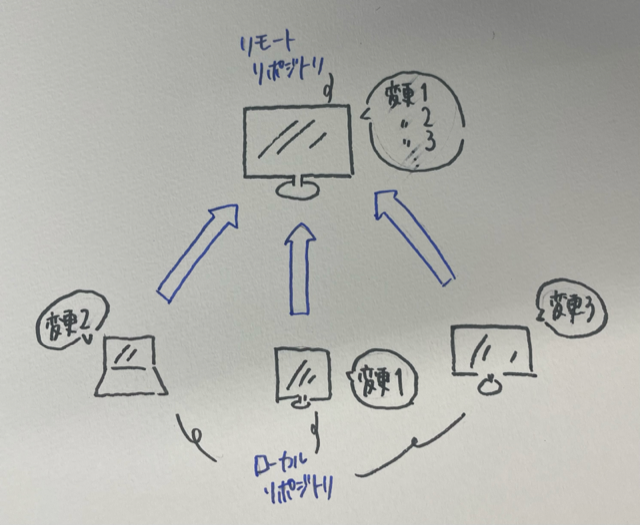 リモート
リポジトリ
変更1
〃 2
〃 3
変更2
変更1
変更3
ローカル
リポジトリ